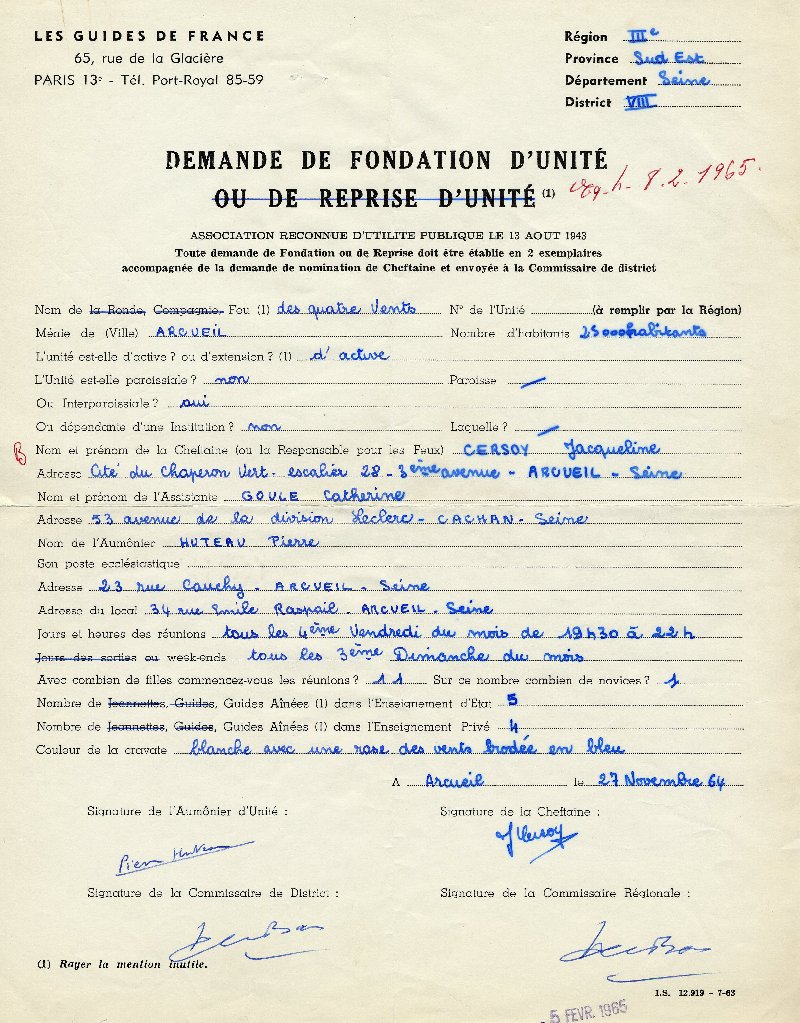 LES GUIDES DE FRANCE
65, rue de la Glacière
PARIS 13e - Tél. Port-Royal 85-59
Région IIIe
Province Sud Est
Département Seine
District VIII
DEMANDE DE FONDATION D'UNITÉ
OU DE REPRISE D'UNITÉ (1)
8.2.1965.
ASSOCIATION RECONNUE D'UTILITE PUBLIQUE LE 13 AOUT 1943
Toute demande de Fondation ou de Reprise doit être établie en 2 exemplaires
accompagnée de la demande de nomination de Cheftaine et envoyée à la Commissaire de district
Nom de la Ronde, Compagnie, Feu (1) des quatre Vents N° de l'Unité (à remplir par la Région)
Ménie de (Ville) ARCUEIL Nombre d'habitants 25000 habitants
L'unité est-elle d'active ? ou d'extension ? (1) d'active
L'Unité est-elle paroissiale ? non Paroisse
Ou Interparoissiale ? oui
Ou dépendante d'une Institution ? non Laquelle ?
B Nom et prénom de la Cheftaine (ou la Responsable pour les Feux) CERSOY Jacqueline
Adresse Cité du Chaperon Vert - escalier 28 - 3ème avenue - ARCUEIL - Seine
Nom et prénom de l'Assistante GOULE Catherine
Adresse 53 avenue de la division Leclerc - CACHAN - Seine
Nom de l'Aumônier HUTEAU Pierre
Son poste ecclésiastique
Adresse 23 rue Cauchy - ARCUEIL - Seine
Adresse du local 34 rue Emile Raspail - ARCUEIL - Seine
Jours et heures des réunions tous les 4ème Vendredi du mois de 19h30 à 22h
Jours des sorties ou week-ends tous les 3ème Dimanche du mois
Avec combien de filles commencez-vous les réunions ? 11 Sur ce nombre combien de novices ? 1
Nombre de Jeannettes, Guides, Guides Aînées (1) dans l'Enseignement d'Etat 5
Nombre de Jeannettes, Guides, Guides Aînées (1) dans l'Enseignement Privé 4
Couleur de la cravate blanche avec une rose des vents brodée en bleu
A Arcueil le 27 Novembre 64
Signature de l'Aumônier d'Unité :
Signature de la Cheftaine :
JCersoy
Pierre Huteau
Signature de la Commissaire de District :
Signature de la Commissaire Régionale :
(1) Rayer la mention inutile.
I.S. 12.919 - 7-63
5 FEVR. 1965